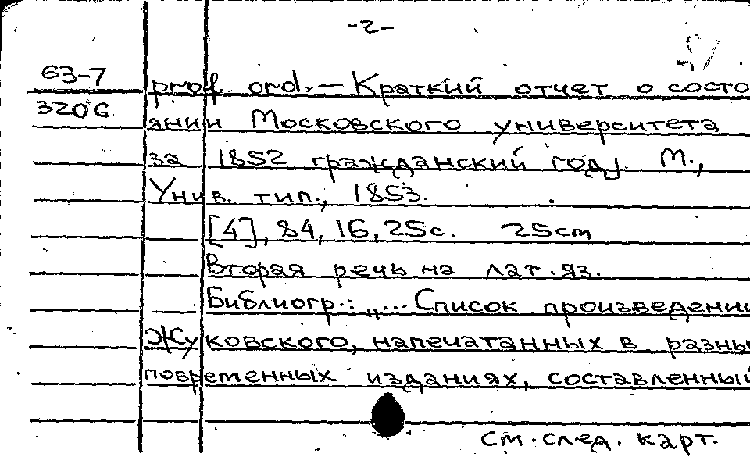 -2-
63-7
3206
prof ord. — Краткий отчет о состо
янии Московского университета
за 1852 гражданский год]. М.,
Унив. тип., 1853.
[4], 84, 16, 25с. 25cm
Вторая речь на лат. яз.
Библиогр.: „... Список произведений
Жуковского, напечатанных в разны
повременных изданиях, составленный
См. след. карт.